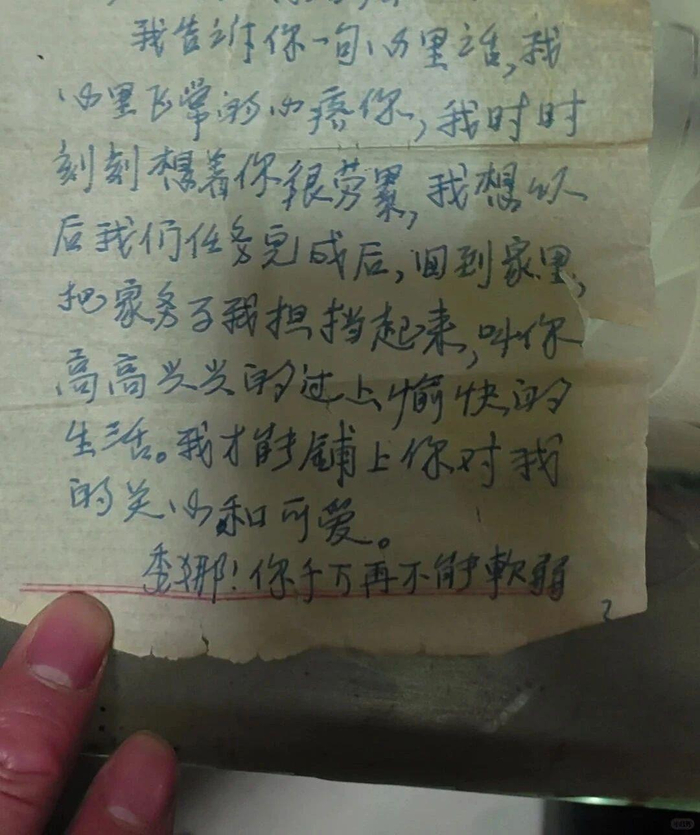 我告诉你一句心里话,我
心里飞常的心疼你,我时时
刻刻想着你很劳累,我想以
后我们任务完成后,回到家里,
把家务子我担挡起来,叫你
高高兴兴的过上愉快的
生活。我才能铺上你对我
的关心和可爱。
季娜!你千万再不能軟弱
2